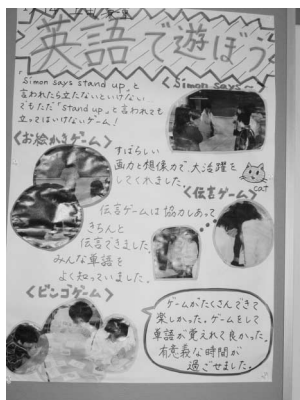 英語で遊ぼう
「Simon says stand up」と
言われたら立たないといけない
でもただ「Stand up」と言われても
立ってはいけないゲーム!
<Simon Says~
<お絵かきゲーム>
すばらしい
画力と想像力で、大活躍を
してくれました。
cat
<伝言ゲーム>
伝言ゲームは協力しあって
きちんと
伝言できました。
みんな単語を
よく知っていました。
<ビンゴゲーム>
ゲームがたくさんできて
楽しかった。ゲームをして
単語が覚えれて良かった。
有意義な時間が
過ごせました。